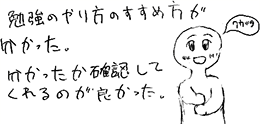 勉強のやり方のすすめ方が
分かった。
分かったか確認して
くれるのが良かった。